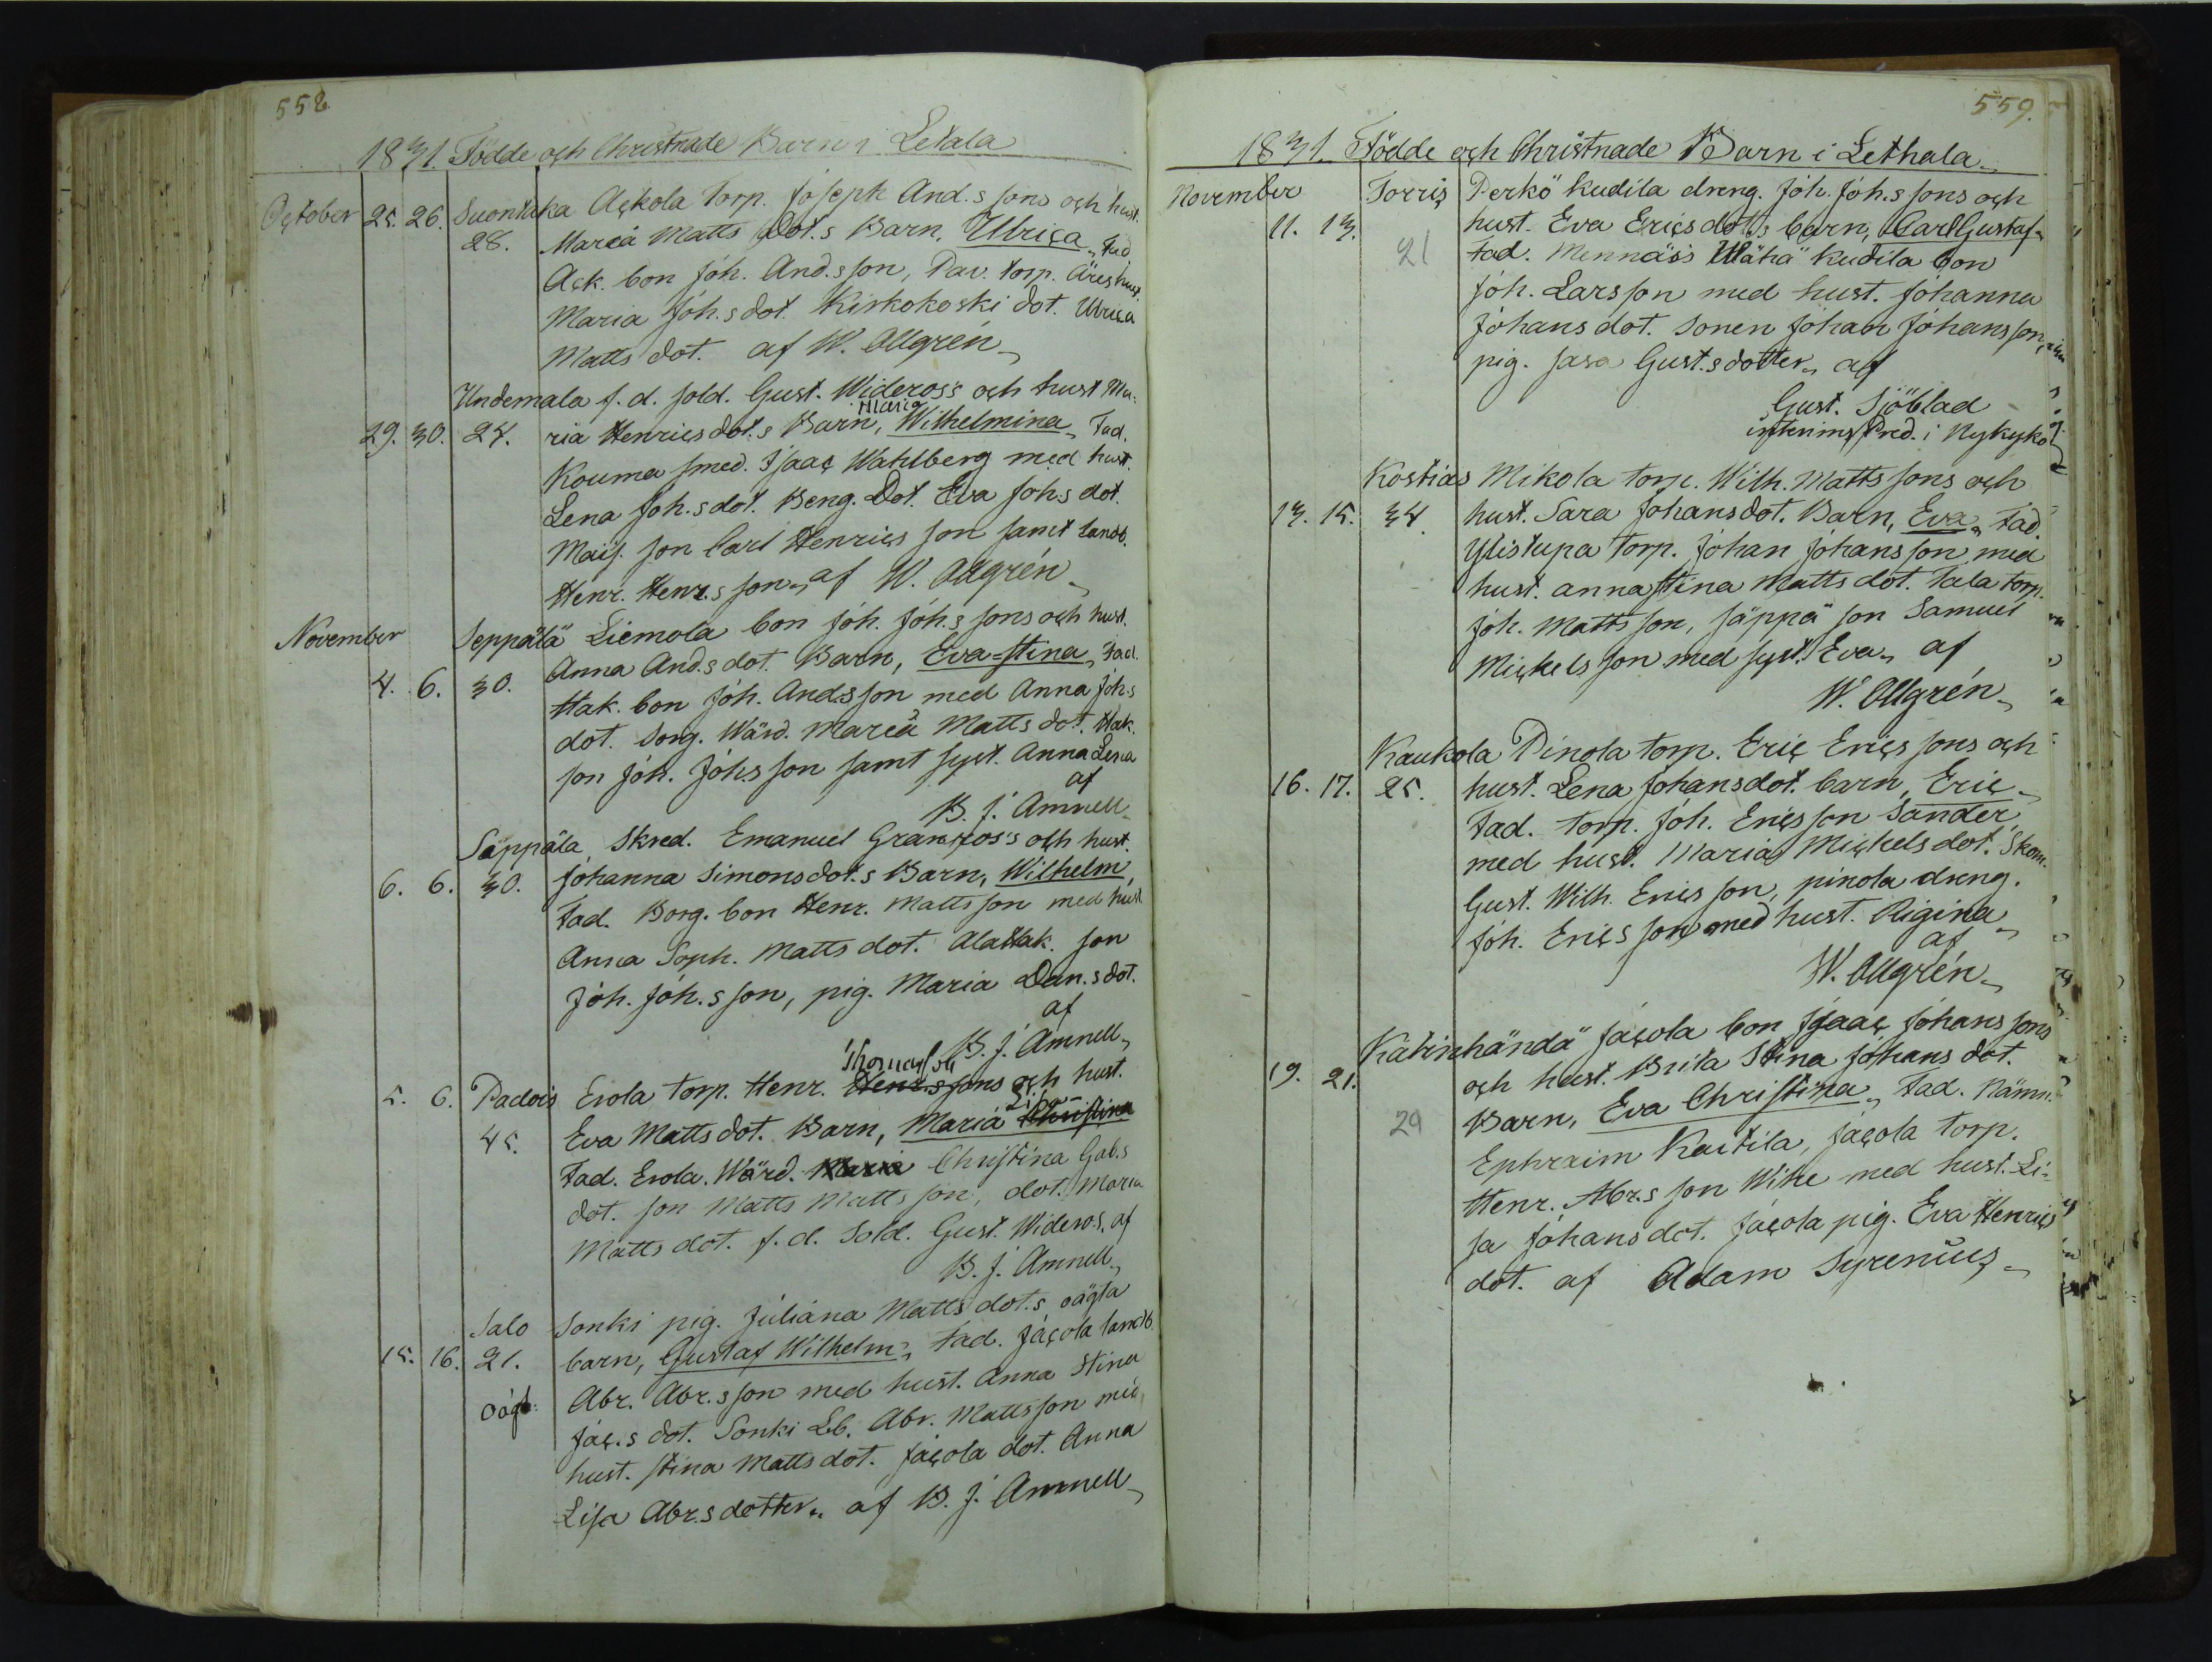 558
1831. Födde och Christnade Barn i Letala
October 25. 26. Suontaka Ackola Torp. Joseph And.s sons och hust.
28. Maria Matts dot.s Barn, Ulrica, Fad.
Ack. bon Joh. And.s son, Pav. torp. Äres hust.
Maria Joh.s dot. Kirkokoski dot. Ulrica
Matts dot. af W. Allgrén
Undemala f. d. sold. Gust. Wideros's och hust Ma-
Maria
29. 30. 24. ria Henrics dot.s Barn, Wilhelmina, Fad.
Kouma smed. Isaac Wahlberg med hust.
Lena Joh.s dot. Beng. Dot. Eva Joh.s dot.
Maij. son Carl Henrics son samt landb.
Henr. Henr.s son, af W. Allgrén
November Seppälä Liemola bon Joh. Joh.s sons och hust.
Anna And.s dot. Barn, Eva=Stina, Fad.
4. 6. 30. Hak. bon Joh. And.s son med Anna Joh.s
dot. Sorg. Wärd. Maria Matts dot. Hak.
son Joh. Joh.s son samt syst. Anna Lena
af
B. J. Amnell
Säppäla Skred. Emanuel Granroos's och hust.
6. 6. 30. Johanna Simons dot.s Barn, Wilhelm,
Fad. Borg. bon Henr. Matts son med hust
Anna Soph. Matts dot. Alattak. son
Joh. Joh.s son, pig. Maria Dan.s dot.
af
B. J. Amnell
Thomas son
5. 6. Padois Erola torp. Henr. Henr.s sons och hust.
Lisa
45. Eva Matts dot. Barn, Maria Christina
Fad. Erola. Wärd. Maria Christina Gab.s
dot. son Matts Matts son, dot. Maria
Matts dot. f. d. Sold. Gust. Wideros. af
B. J. Amnell
Salo Sonki pig. Juliana Matts dot.s oägta
15. 16. 21. barn, Gustaf Wilhelm, Fad. Jacola landb
oägt: Abr. Abr.s son med hust. Anna Stina
Jac.s dot. Sonki Lb. Abr. Matts son med
hust. Stina Matts dot. Jacola dot. Anna
Lisa Abr.s dotter. af B. J. Amnell
559.
1831. Födde och Christnade Barn i Lethala
November Torris Perkö kudila dreng. Joh. Joh.s sons och
11. 13. hust. Eva Erics dot.s barn, Carl Gustaf
21 Fad. Mennäis Wähä kudila bon
Joh. Lars son med hust. Johanna
Johans dot. Sonen Johan Johans son,
pig. Sara Gust.s dotter, af
Gust. Sjöblad
interims Pred. i Nykyrko
Kostias Mikola torp. Wilh. Matts sons och
13. 15. 34. hust. Sara Johans dot. Barn, Eva, Fad.
Ylistupa torp. Johan Johans son med
hust. Anna Stina Matts dot. Tala torp.
Joh. Matts son, Säppä son Samuel
Mickels son med syst. Eva, af
W. Allgrén
Kaukola Pinola torp. Eric Erics sons och
16. 17. 25. hust. Lena Johans dot. barn, Eric
Fad. torp. Joh. Erics son Sander,
med hust. Maria Mickels dot. Skom.
Gust. Wilh. Erics son, pinola dreng.
Joh. Erics son med hust. Rigina
af
W. Allgrén
Katinhändä Jacola bon Isaac Johans sons
19. 21. och hust. Brita Stina Johans dot.
29 Barn, Eva Christina, Fad. Nämn.
Ephraim Kaitila, Jacola torp.
Henr. Abr.s son Wihe med hust. Li-
sa Johans dot. Jacola pig. Eva Henrics
dot. af Adam Syrenius